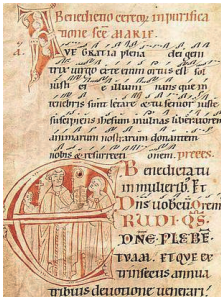 Benedictio cereor. in purifica
tione sce MARIE.
AVE GRATIA plena dei geni
trix virgo ex te enim ortus est sol
iusti ci e illumi nans que in
tenebris sunt letare et tu senior iuste
suscipiens ihesum in ulnas liberatorem
animarum nostrarum donantem
nobis et resurrecti onem. preces.
Benedicta tu
in mulieribus. Et
Dns vobiscum. Orem
ERUDI. QS.
DNE. PLEBE
TUAM. ET QUE EX
trinsecus annua
tribuis devotione venerari